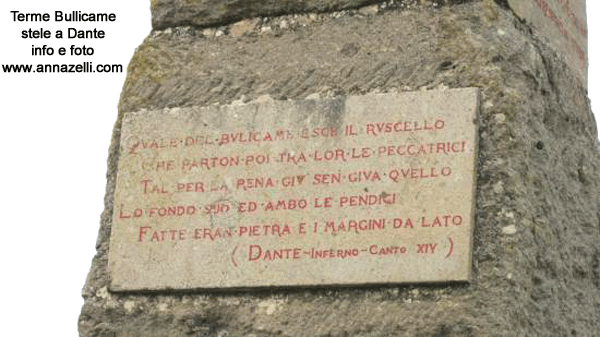 Terme Bullicame
stele a Dante
info e foto
www.annazelli.com
QVALE·DEL·BVLICAME·ESCE IL RVSCELLO
CHE PARTON·POI·TRA·LOR·LE·PECCATRICI
TAL·PER·LA RENA·GIV SEN·GIVA·QVELLO
LO·FONDO SUO ED·AMBO LE PENDICI
FATTE ERAN·PIETRA·E I MARGINI·DA LATO
(DANTE-INFERNO-CANTO XIV)